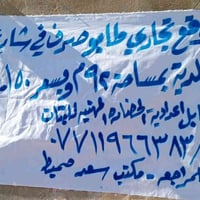 قع تجاري طابو صرف في شارع
لدية بمساحة ٩٢م وبسعر ١٥٠
بل اعدادية الحضارة المهنية للبنات
٠٧٧١١٩٦٦٣٨٣
لمراجعة - مكتب سعد